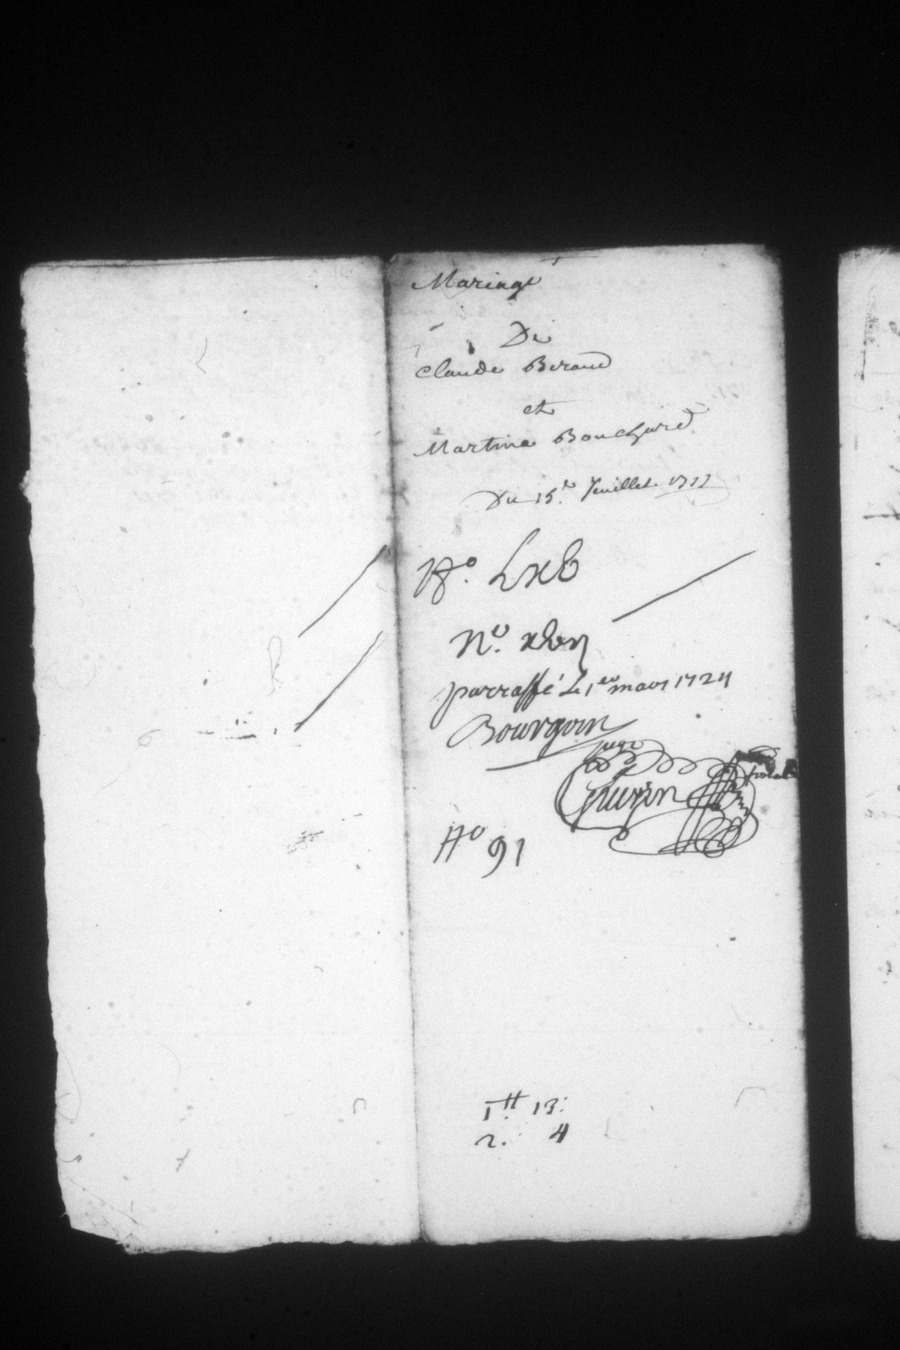 Mariage
De
Claude Beraud
et
Martine Bouchard
Du 15.e Jeuillet
No.
No.
parraffé Le 1er mars 1724
Bourgoin
juge
No 91
1tt 13:
2. 4